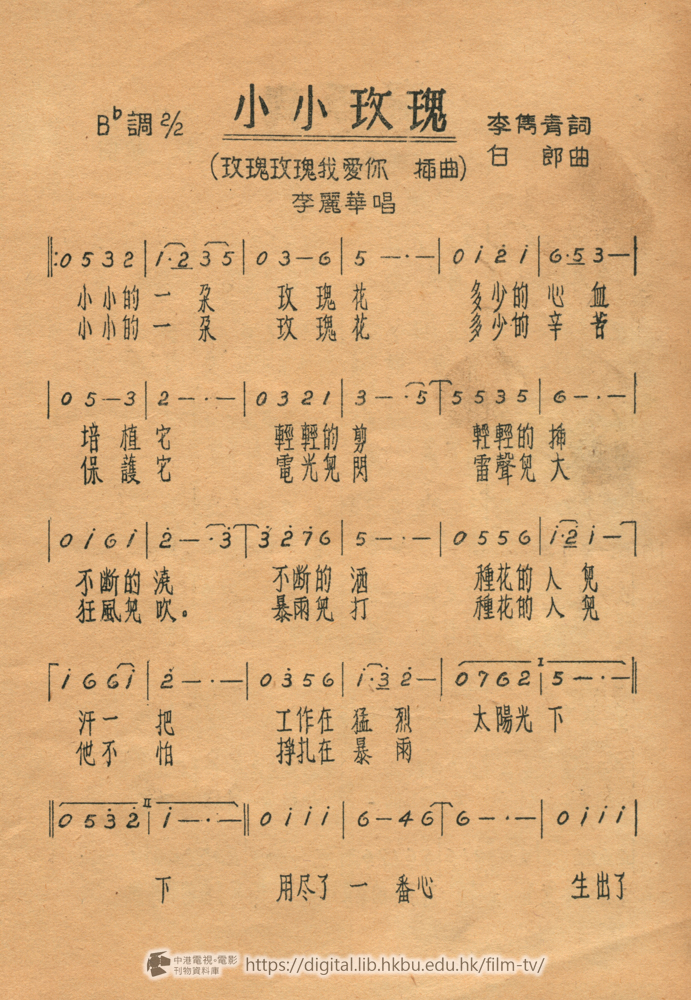 小小玫瑰
B♭調 2/2
李雋青詞
白 郎曲
(玫瑰玫瑰我愛你 插曲)
李麗華唱
‖: 0 5 3 2 | i·2 3 5 | 0 3 — 6 | 5 — · — | 0 i 2̇ i | 6·5 3 — |
小小的 一 朵 玫 瑰 花 多少的 心 血
小小的 一 朵 玫 瑰 花 多少的 辛 苦
| 0 5 — 3 | 2 — · — | 0 3 2 1 | 3 — · 5 | 5 5 3 5 | 6 — · — |
培 植 它 輕輕的 剪 輕輕的 插
保 護 它 電光兒 閃 雷聲兒 大
| 0 i 6 i | 2̇ — · 3̇ | 3̇ 2̇ 7 6 | 5 — · — | 0 5 5 6 | i·2̇ i — |
不斷的 澆 不斷的 洒 種花的 人 兒
狂風兒 吹。 暴雨兒 打 種花的 人 兒
| i 6 6 i | 2̇ — · — | 0 3̇ 5 6 | i·3̇ 2̇ — | 0 7 6 2 | I 5 — · — ‖
汗一 把 工作在 猛 烈 太陽光 下
他不 怕 掙扎在 暴 雨
‖ 0 5 3̇ 2̇ | II i — · — ‖ 0 i i i | 6 — 4 6 | 6 — · — | 0 i i i |
下 用尽了 一 番心 生出了
中港電視·電影
刊物資料庫
https://digital.lib.hkbu.edu.hk/film-tv/